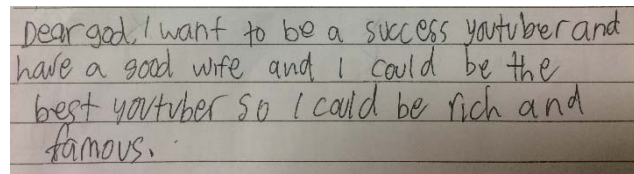 Dear god, I want to be a success youtuber and
have a good wife and I could be the
best youtuber so I could be rich and
famous.